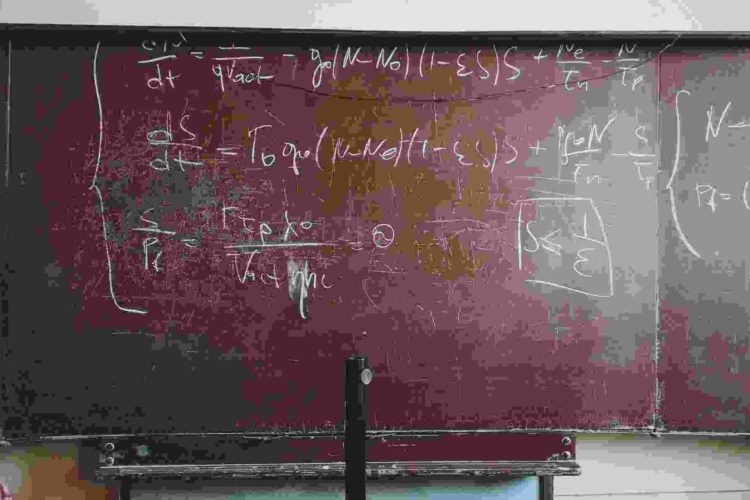 dN/dt = I/qVact - g₀(N-N₀)(1-εS)S + Ne/τn - N/τp
dS/dt = Γ₀ g₀(N-N₀)(1-εS)S + N/τn - S/τp
S/Pf = τp λ₀/Vact ηhc = ϑ
S ≤ 1/ε
N -
Pf = (